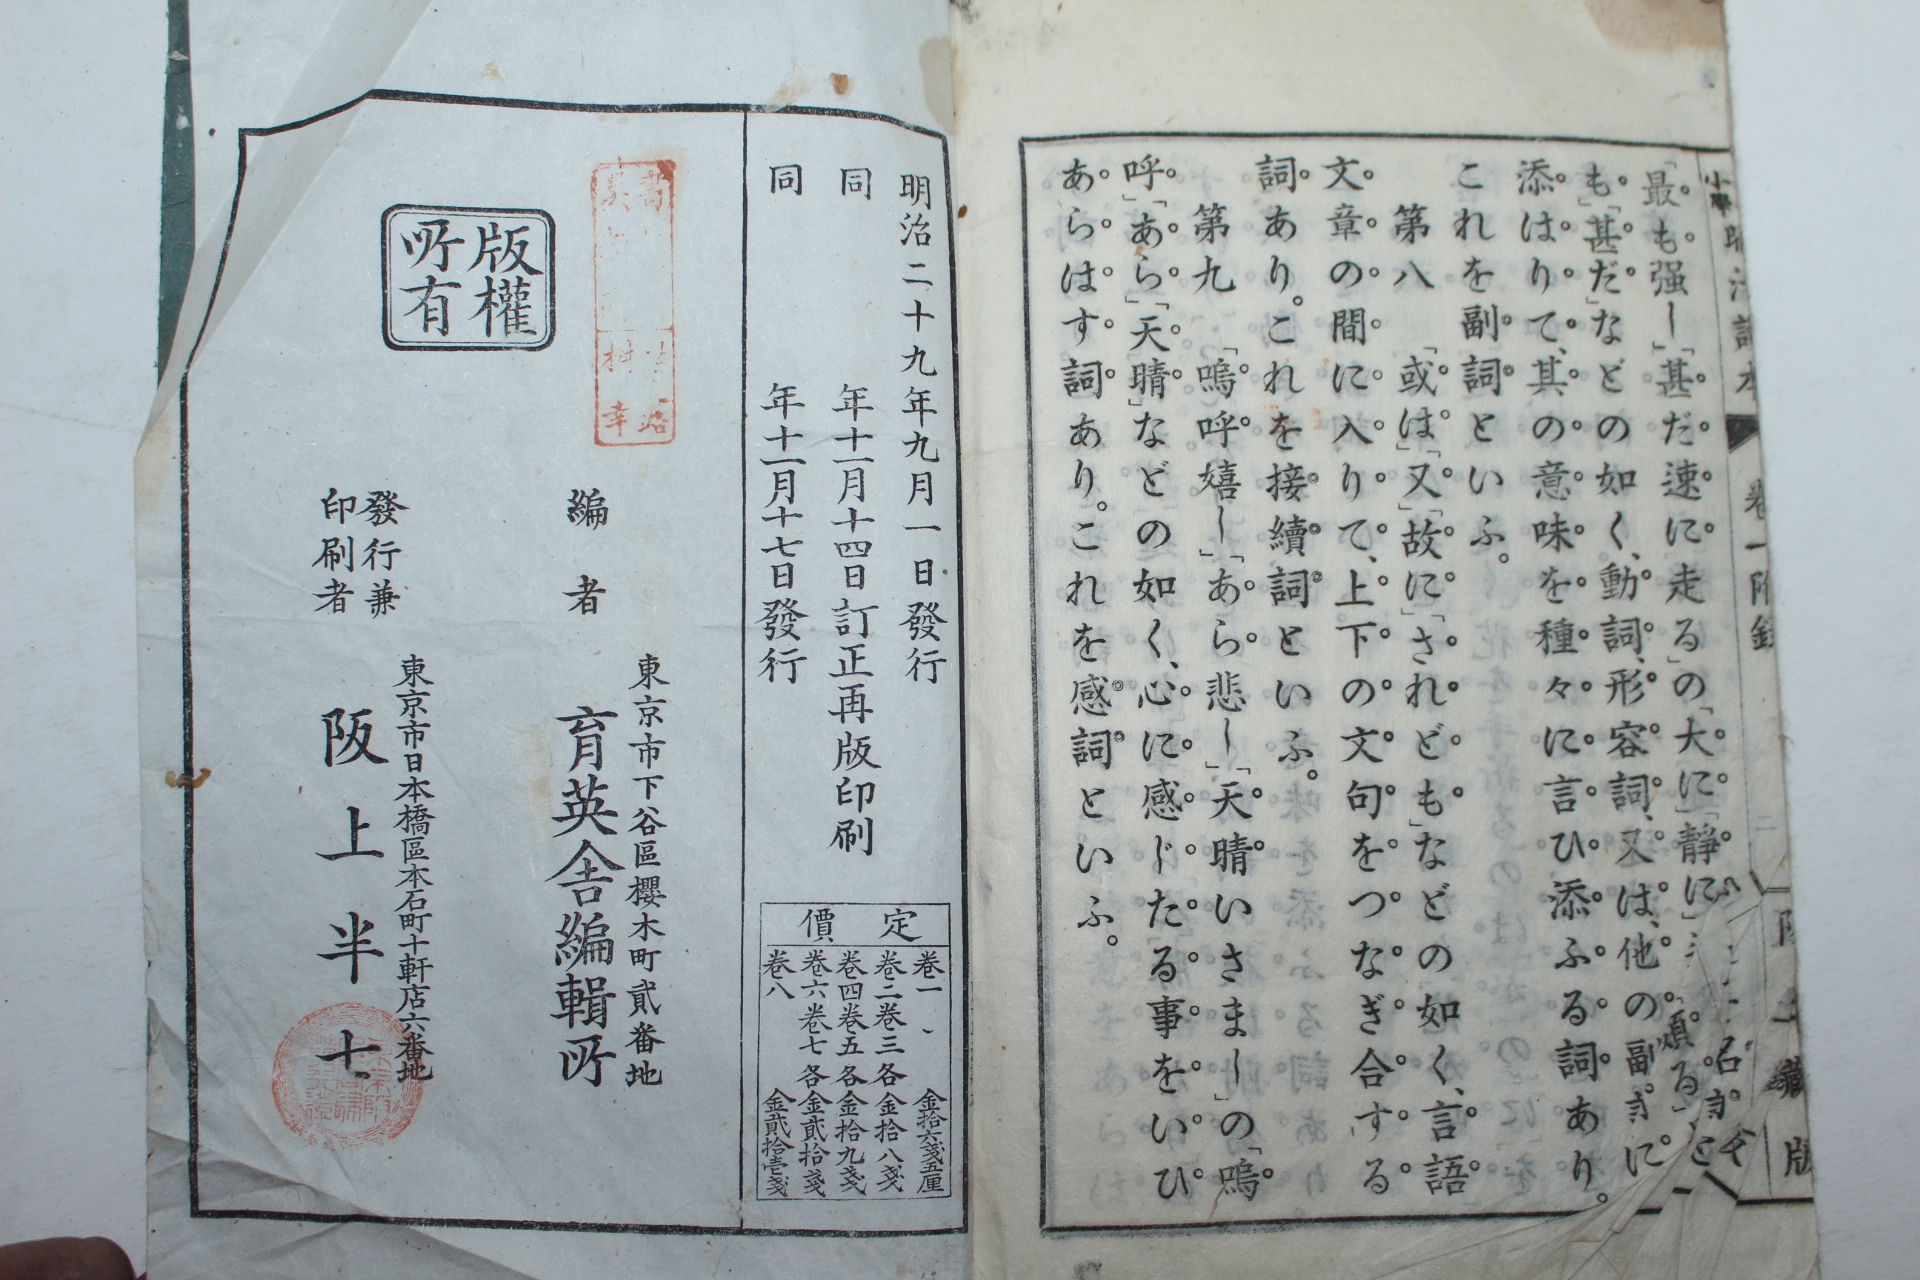 「最も强し」「甚だ速に走る」の「大に」「靜に」「頗る」
も」「甚だ」などの如く、動詞、形容詞、又は、他の副詞に
添はりて、其の意味を種々に言ひ添ふる詞あり。
これを副詞といふ。
第八　「或は」「又」「故に」「されども」などの如く、言語
文章の間に入りて、上下の文句をつなぎ合する
詞あり。これを接續詞といふ。
第九　「嗚呼嬉し」「あら悲し」「天晴いさまし」の「嗚
呼」「あら」「天晴」などの如く、心に感じたる事をいひ
あらはす詞あり。これを感詞といふ。
卷一附錄
二
藏版
明治二十九年九月一日發行
同　年十一月十四日訂正再版印刷
同　年十一月十七日發行
定價
卷一　金拾六錢五厘
卷二卷三各金拾八錢
卷四卷五各金拾九錢
卷六卷七各金貳拾錢
卷八　金貳拾壱錢
版權
所有
東京市下谷區櫻木町貳番地
編者　育英舍編輯所
東京市日本橋區本石町十軒店六番地
發行兼
印刷者　阪上半七